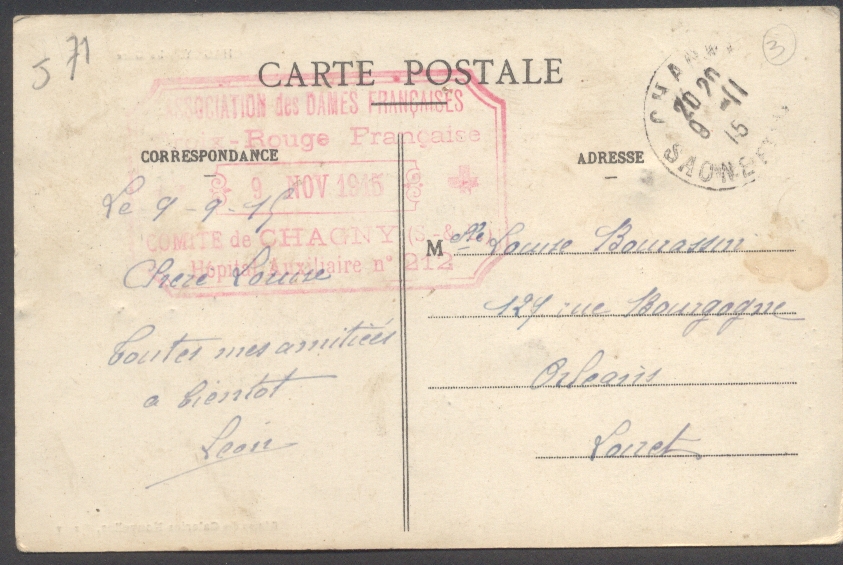 5 71
3
CARTE POSTALE
ASSOCIATION des DAMES FRANÇAISES
-Rouge Française
9 NOV 1915
COMITÉ de CHAGNY (S.-&
Hôpital Auxiliaire n° 212
CHAGNY
20 20
9 -11
15
SAONE
CORRESPONDANCE
Le 9 - 9 - 15
Chere Louise
toutes mes amitiées
a bientot
Leon
ADRESSE
Mlle Louise Bourassin
127 rue Bourgogne
Orleans
Loiret